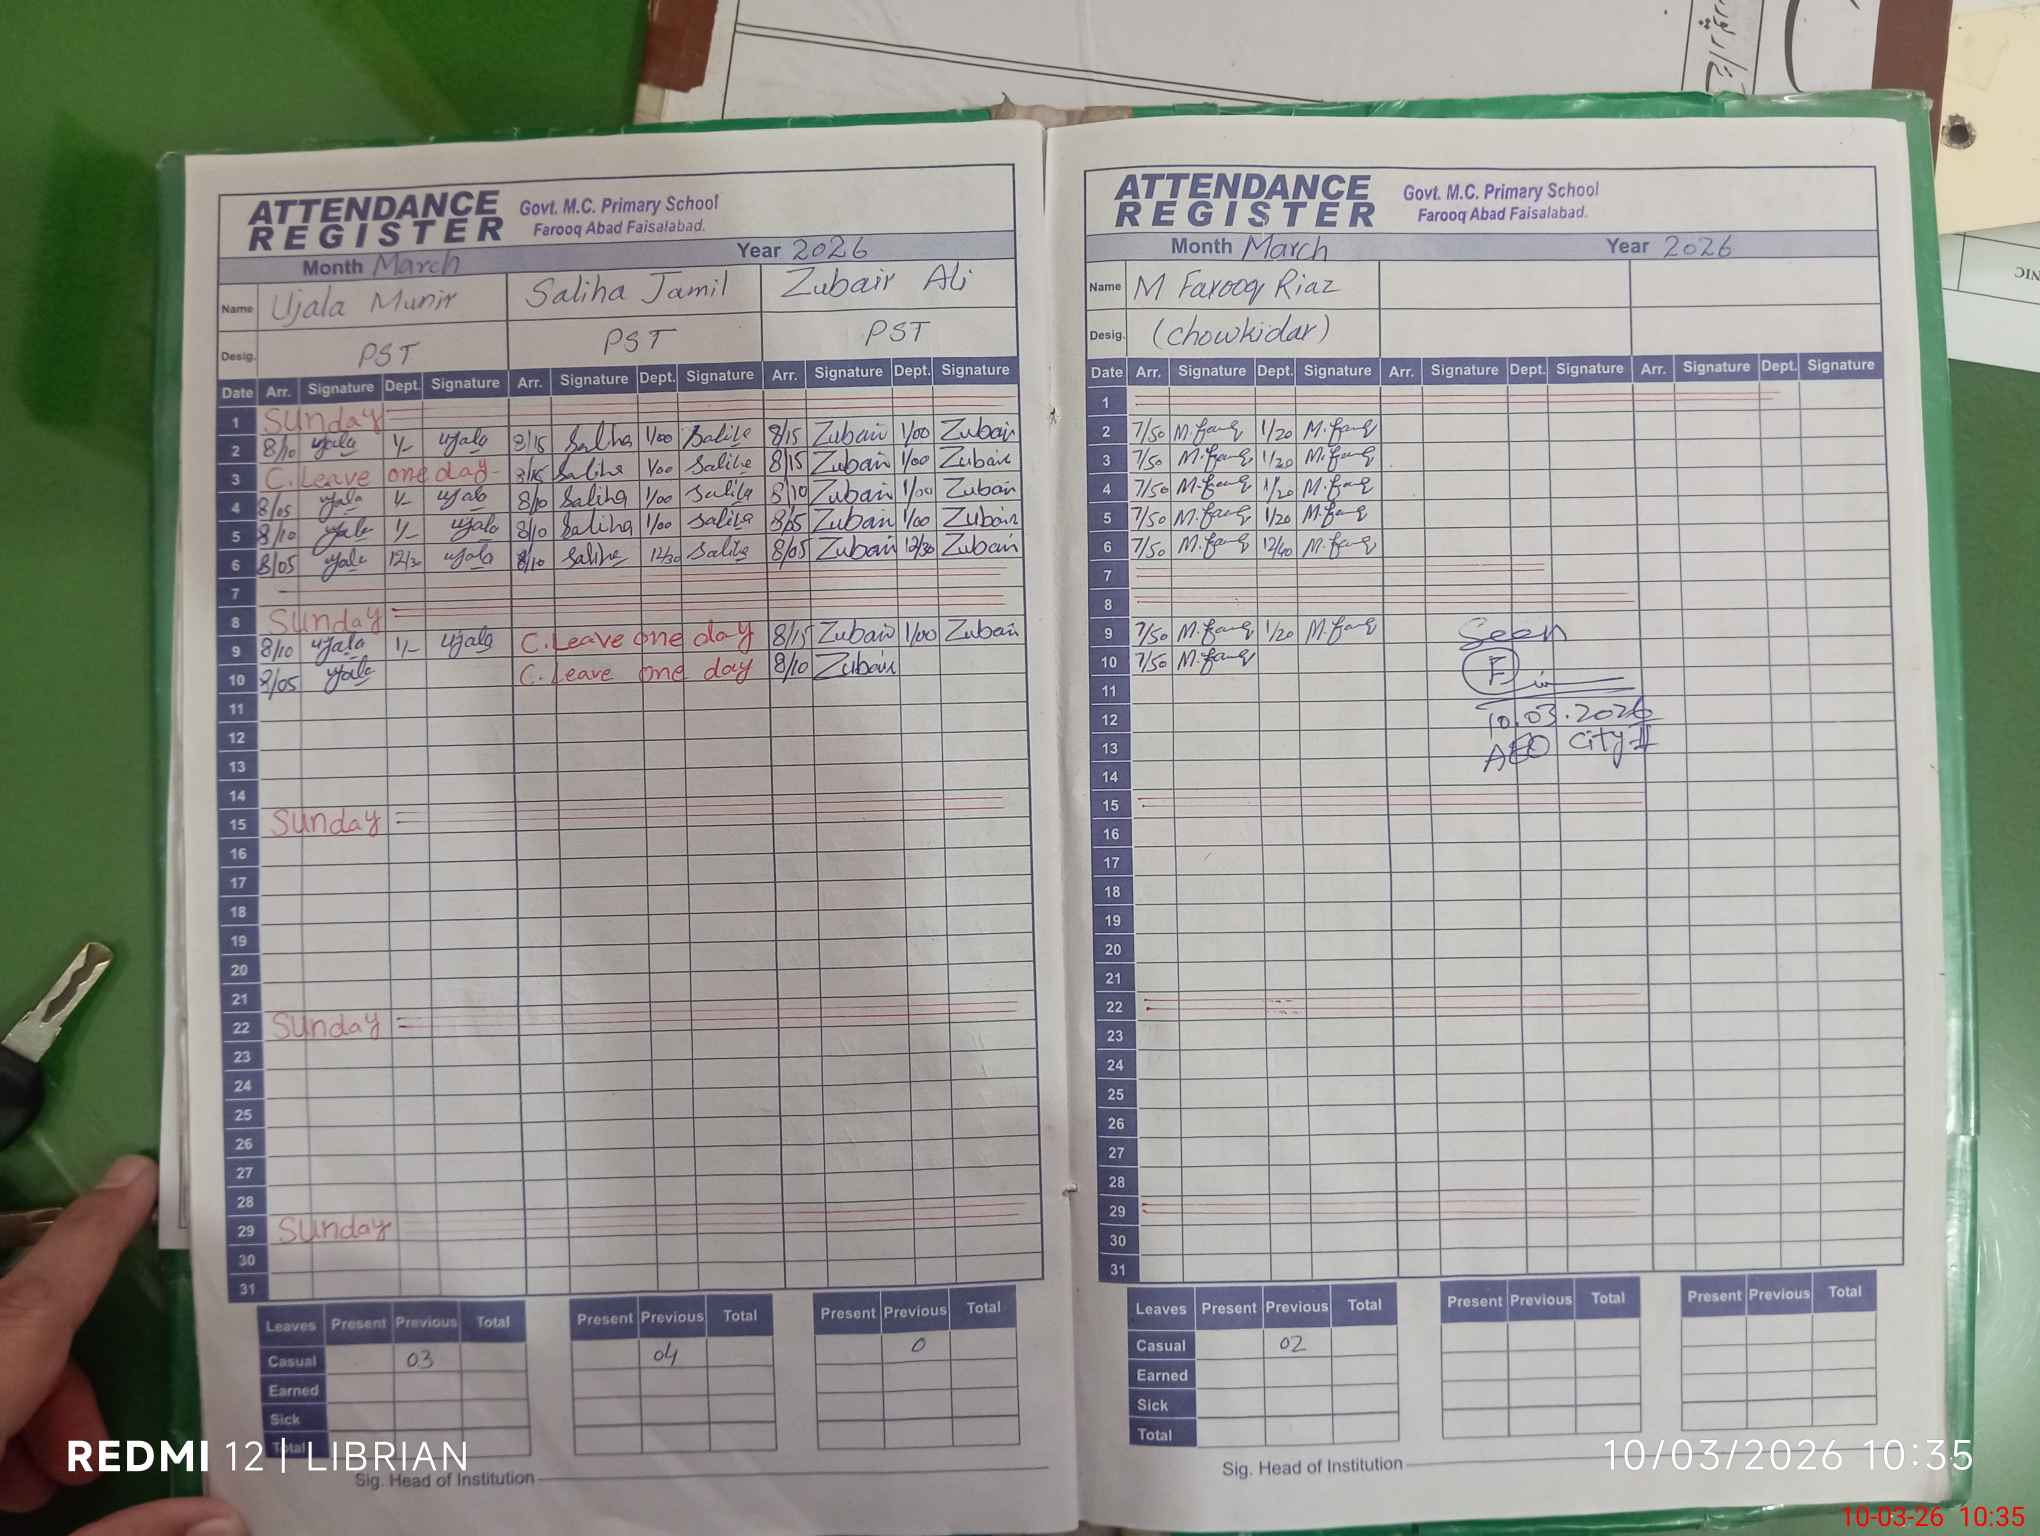 ATTENDANCE REGISTER
Govt. M.C. Primary School
Farooq Abad Faisalabad.
Month March Year 2026
Name Ujala Munir Saliha Jamil Zubair Ali
Desig. PST PST PST
Date Arr. Signature Dept. Signature Arr. Signature Dept. Signature Arr. Signature Dept. Signature
1 Sunday
2 8/10 Ujala 1/- Ujala 8/15 Saliha 1/00 Saliha 8/15 Zubair 1/00 Zubair
3 C.Leave one day 8/15 Saliha 1/00 Saliha 8/15 Zubair 1/00 Zubair
4 8/05 Ujala 1/- Ujala 8/10 Saliha 1/00 Saliha 8/10 Zubair 1/00 Zubair
5 8/10 Ujala 1/- Ujala 8/10 Saliha 1/00 Saliha 8/05 Zubair 1/00 Zubair
6 8/05 Ujala 12/30 Ujala 8/10 Saliha 12/30 Saliha 8/05 Zubair 12/30 Zubair
7
8 Sunday
9 8/10 Ujala 1/- Ujala C.Leave one day 8/15 Zubair 1/00 Zubair
10 8/05 Ujala C.Leave one day 8/10 Zubair
11
12
13
14
15 Sunday
16
17
18
19
20
21
22 Sunday
23
24
25
26
27
28
29 Sunday
30
31
Leaves Present Previous Total Present Previous Total Present Previous Total
Casual 03 04 0
Earned
Sick
Total
Sig. Head of Institution
ATTENDANCE REGISTER
Govt. M.C. Primary School
Farooq Abad Faisalabad.
Month March Year 2026
Name M Farooq Riaz
Desig. (chowkidar)
Date Arr. Signature Dept. Signature Arr. Signature Dept. Signature Arr. Signature Dept. Signature
1
2 7/50 M.farooq 1/20 M.farooq
3 7/50 M.farooq 1/20 M.farooq
4 7/50 M.farooq 1/20 M.farooq
5 7/50 M.farooq 1/20 M.farooq
6 7/50 M.farooq 12/40 M.farooq
7
8
9 7/50 M.farooq 1/20 M.farooq Seen
10 7/50 M.farooq
11
12 10.03.2026
13 AEO City II
14
15
16
17
18
19
20
21
22
23
24
25
26
27
28
29
30
31
Leaves Present Previous Total Present Previous Total Present Previous Total
Casual 02
Earned
Sick
Total
Sig. Head of Institution
REDMI 12 | LIBRIAN
10/03/2026 10:35
10-03-26 10:35